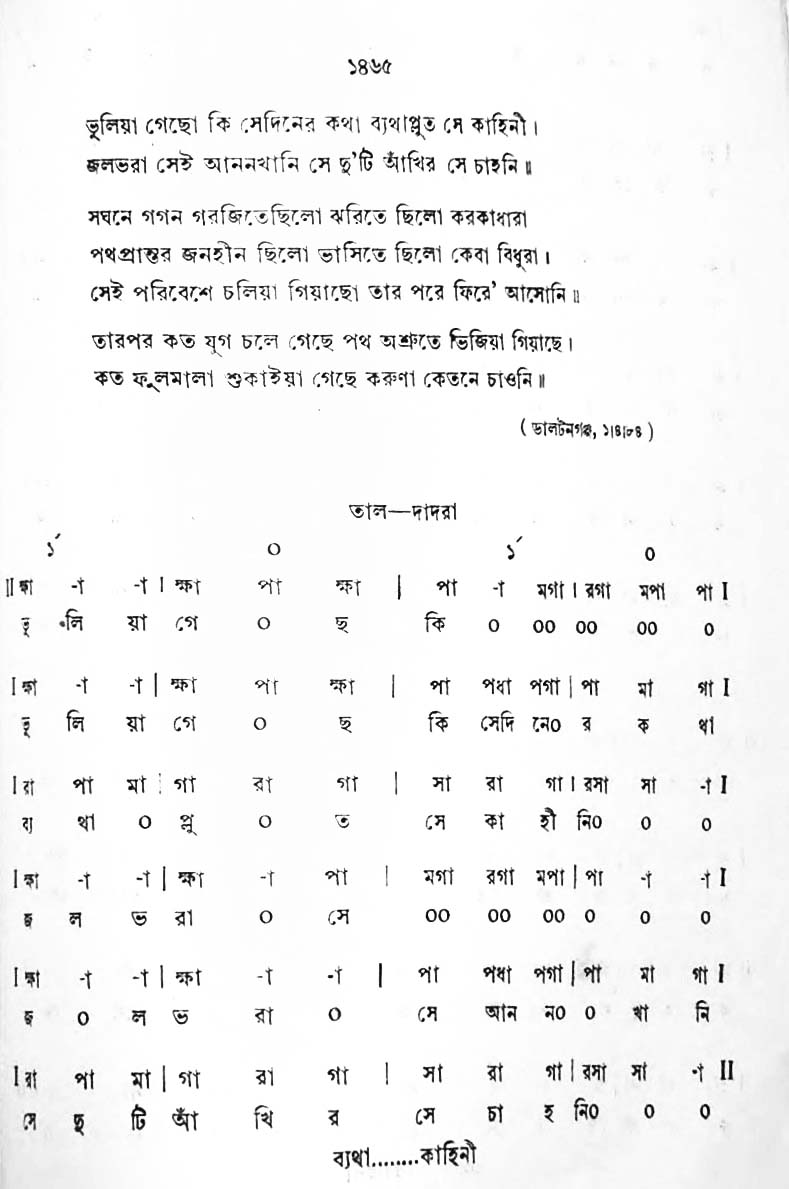 ১৪৬৫
ভুলিয়া গেছো কি সেদিনের কথা ব্যথাপ্লুত সে কাহিনী।
জলভরা সেই আননখানি সে দু'টি আঁখির সে চাহনি॥
সঘনে গগন গরজিতেছিলো ঝরিতে ছিলো করকাধারা
পথপ্রান্তর জনহীন ছিলো ভাসিতে ছিলো কেবা বিধুরা।
সেই পরিবেশে চলিয়া গিয়াছো তার পরে ফিরে' আসোনি॥
তারপর কত যুগ চলে গেছে পথ অশ্রুতে ভিজিয়া গিয়াছে।
কত ফুলমালা শুকাইয়া গেছে করুণা কেতনে চাওনি॥
( ডালটনগঞ্জ, ১।৪।৮৪ )
তাল—দাদরা
১´ ০ ১´ ০
II ক্ষা -া -া । ক্ষা পা ক্ষা | পা -া মগা । রগা মপা পা I
ভু লি য়া গে ০ ছ কি ০ ০০ ০০ ০০ ০
I ক্ষা -া -া | ক্ষা পা ক্ষা | পা পধা পগা | পা মা গা I
ভু লি য়া গে ০ ছ কি সেদি নে০ র ক থা
I রা পা মা | গা রা গা | সা রা গা । রসা সা -া I
ব্য থা ০ প্লু ০ ত সে কা হী নি০ ০ ০
I ক্ষা -া -া | ক্ষা -া পা | মগা রগা মপা | পা -া -া I
জ ল ভ রা ০ সে ০০ ০০ ০০ ০ ০ ০
I ক্ষা -া -া | ক্ষা -া -া | পা পধা পগা | পা মা গা I
জ ০ ল ভ রা ০ সে আন ন০ ০ খা নি
I রা পা মা | গা রা গা | সা রা গা | রসা সা -া II
সে দু টি আঁ খি র সে চা হ নি০ ০ ০
ব্যথা........কাহিনী